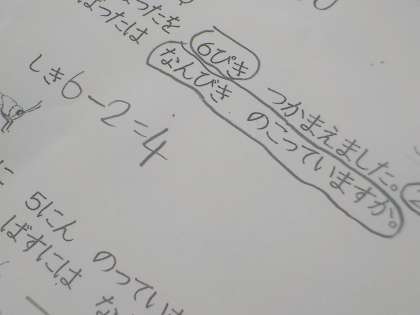 ったを 6ぴき つかまえました。2
ばったは なんびき のこっていますか。
しき 6-2=4
5にん のってい
ばすには な